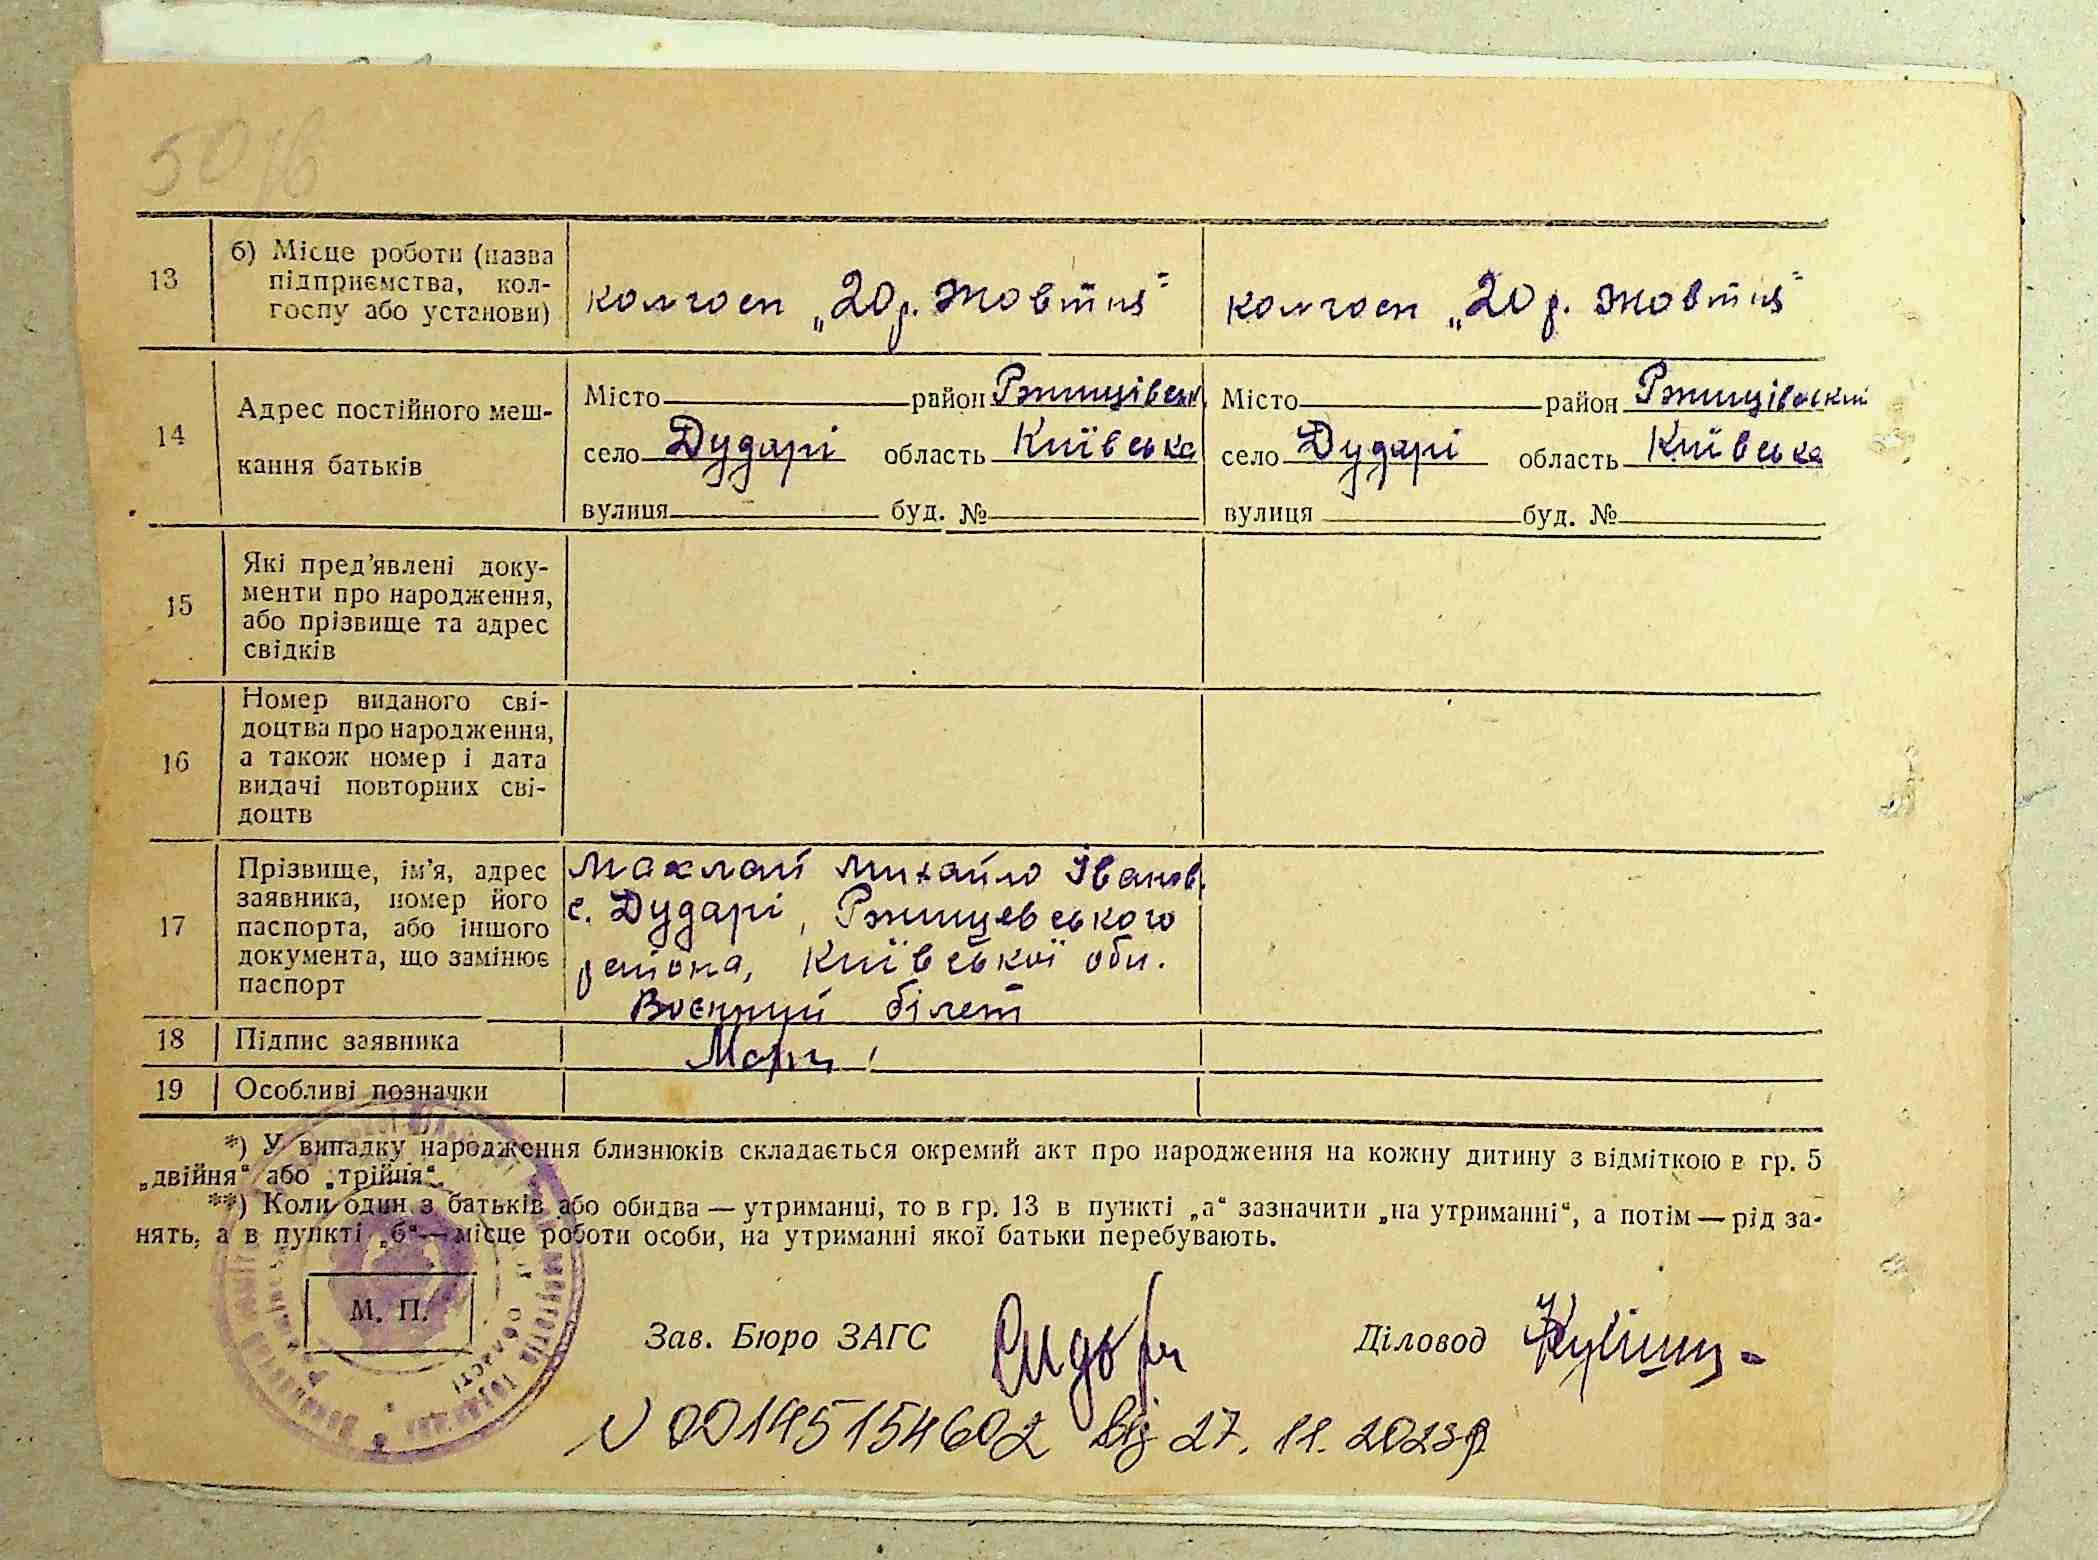 50 зв
13
б) Місце роботи (назва
підприємства, кол-
госпу або установи)
колгосп „20 р. Жовтня"
колгосп „20 р. Жовтня"
14
Адрес постійного меш-
кання батьків
Місто район Ржищівськ.
село Дударі область Київська
вулиця буд. №
Місто район Ржищівський
село Дударі область Київська
вулиця буд. №
15
Які пред'явлені доку-
менти про народження,
або прізвище та адрес
свідків
16
Номер виданого сві-
доцтва про народження,
а також номер і дата
видачі повторних сві-
доцтв
17
Прізвище, ім'я, адрес
заявника, номер його
паспорта, або іншого
документа, що замінює
паспорт
Махлай Михайло Іванов.
с. Дударі, Ржищевського
района, Київської обл.
Воєнний білет
18
Підпис заявника
19
Особливі позначки
*) У випадку народження близнюків складається окремий акт про народження на кожну дитину з відміткою в гр. 5
„двійня" або „трійня".
**) Коли один з батьків або обидва — утриманці, то в гр. 13 в пункті „а" зазначити „на утриманні", а потім — рід за-
нять, а в пункті „б" — місце роботи особи, на утриманні якої батьки перебувають.
М. П.
ОБЛАСТІ
Зав. Бюро ЗАГС
Діловод
N 00145154602 від 27.11.2023р